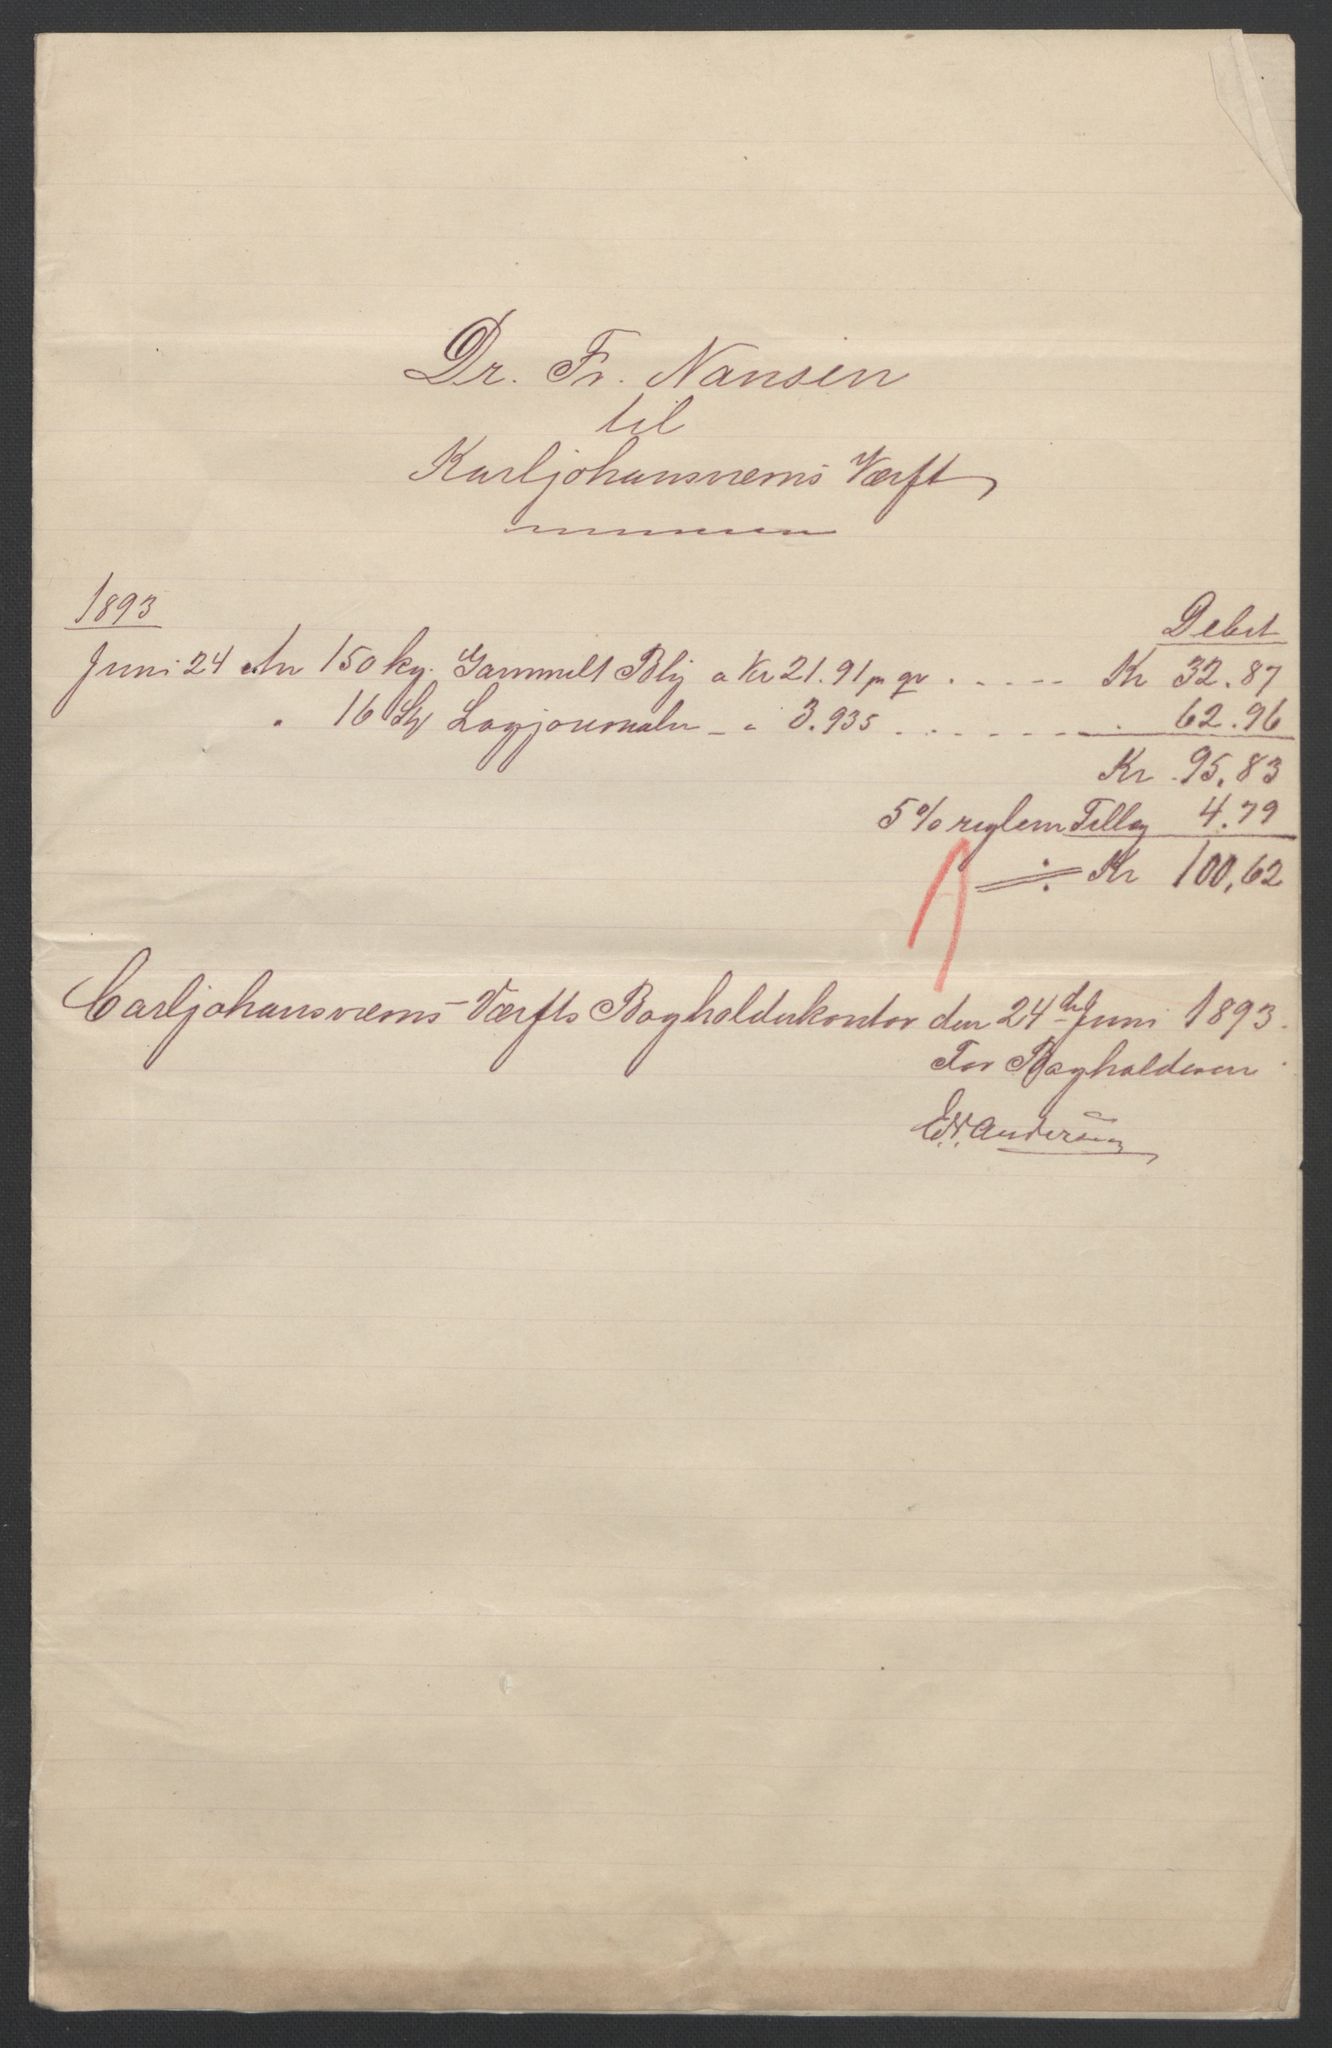 Dr. Fr. Nansen
til
Karljohansværns Værft
1893
Debet
Juni 24 An 150 kg. Gammelt Bly a Kr 21.91 pr qv ..... Kr 32.87
" 16 St Logjournaler - " 3.935 ....... " 62.96
Kr. 95.83
5% reglem Tillæg 4.79
Kr 100,62
Carljohansværns Værfts Bogholderkontor den 24de Juni 1893.
For Bogholderen
Andersen